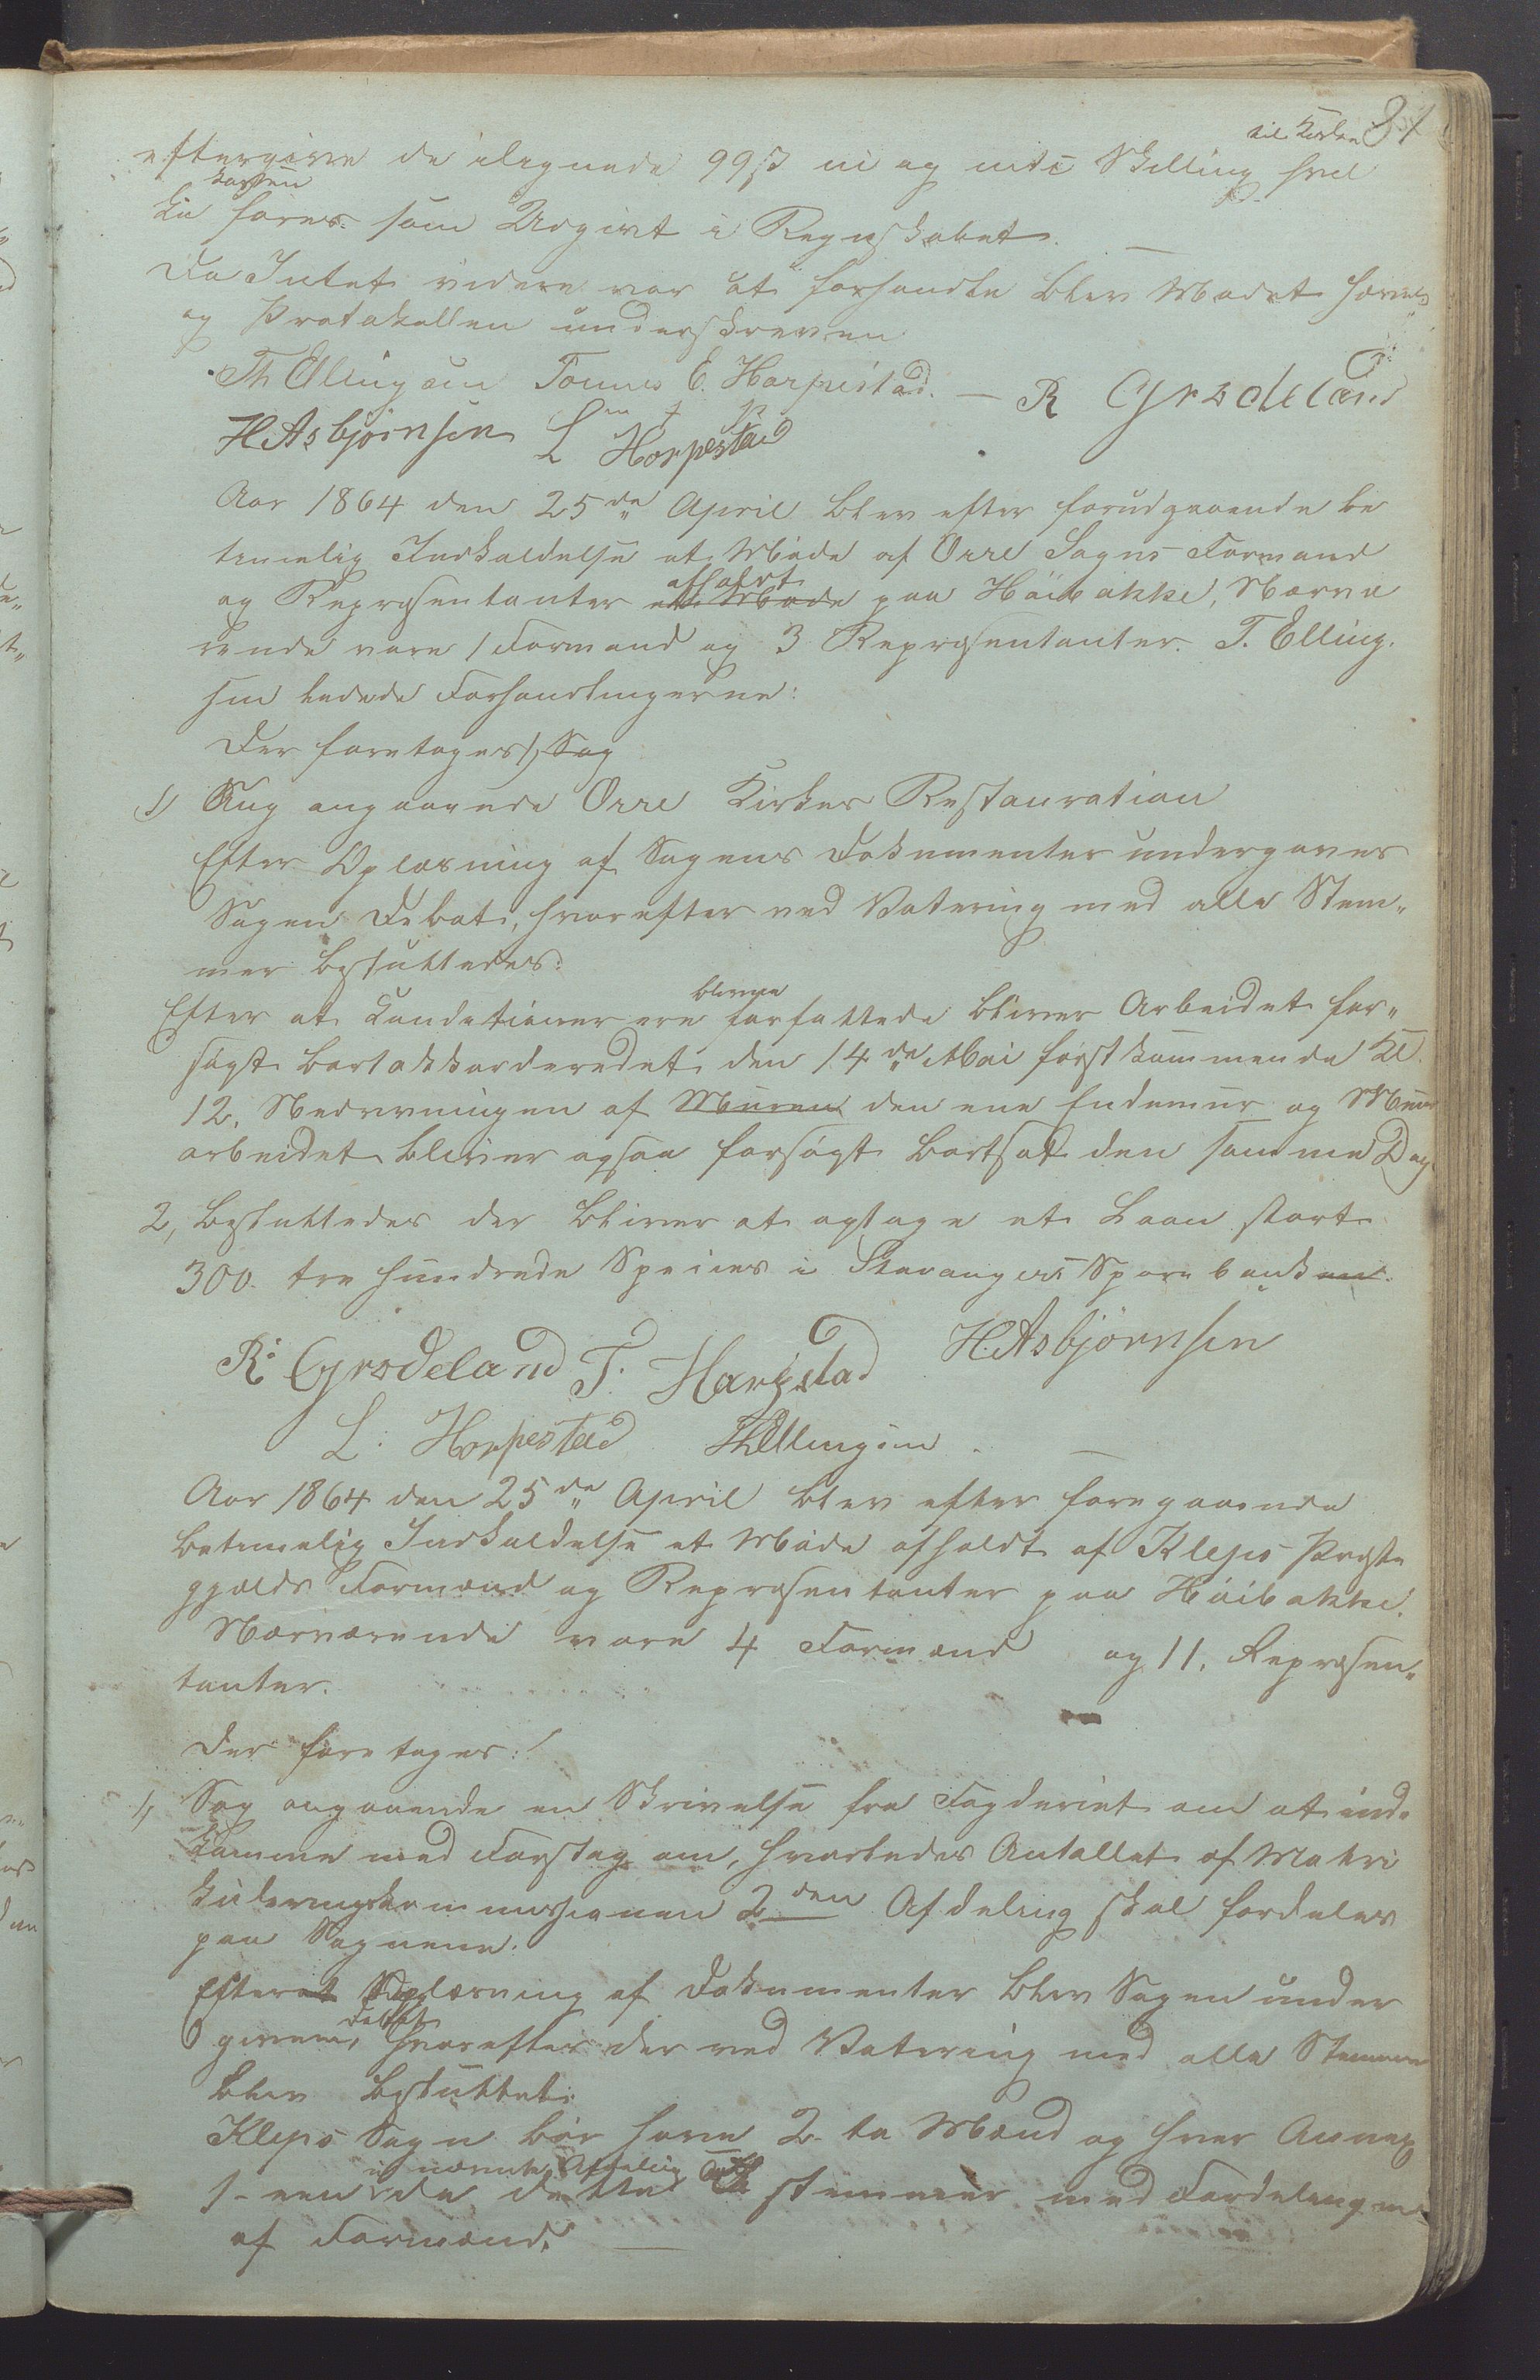 81
eftergive de ilignede 99 ß ni og niti Skilling hvil
til Kirken
kassen
ke føres som Udgivt i Regnskabet.
Da Intet videre var at forhandle blev Mødet hævet
og Protokollen underskreven
Th Ellingsen Tønnes E. Harpestad. — R Grødeland
H. Asbjørnsen L Horpestad
Aar 1864 den 25de April blev efter forudgaaende be
timelig Indkaldelse et Møde af Orre Sogns Formænd
afholdt
og Repræsentanter et Møde paa Høibakke, Nærvæ
rende vare 1 Formand og 3 Repræsentanter. T. Elling.
sen ledede Forhandlingerne:
Der foretoges 1) Sag
1) Sag angaaende Orre Kirkes Restauration
Efter Oplæsning af Sagens Dokumenter undergaves
Sagen Debat, hvorefter ved Votering med alle Stem„
mer besluttedes:
bleven
Efter at Conditioner ere forfattede bliver Arbeidet for„
søgt bortakkorderedet den 14de Mai førstkommende Kl.
12. Nedrivningen af Muren den ene Endemur og Muur
arbeidet bliver ogsaa forsøgt bortsat den samme Dag
2, besluttedes der bliver at optage et Laan stort
300. tre hundrede Species i Stavangers Sparebanken.
R. Grødeland T. Harpestad H. Asbjørnsen
L. Horpestad Th Ellingsen.
Aar 1864 den 25de April blev efter foregaaende
betimelig Indkaldelse et Møde afholdt af Kleps Præste
gjælds Formænd og Repræsentanter paa Høibakke.
Nærværende vare 4 Formænd og 11. Repræsen„
tanter.
Der foretoges:
1, Sag angaaende en Skrivelse fra Fogderiet om at ind„
komme med Forslag om, hvorledes Antallet af Matri
kuleringskommissionen 2den Afdeling skal fordeles
paa Sognene.
Efterat Oplæsning af Dokumenter blev Sagen under
debat
given, hvorefter der ved Votering med alle Stemmer
blev besluttet:
Kleps Sogn bør have 2 to Mænd og hver Annex
i nævnte Afdeling
1 - een da dette stemmer med Fordelingen
af Formænd.